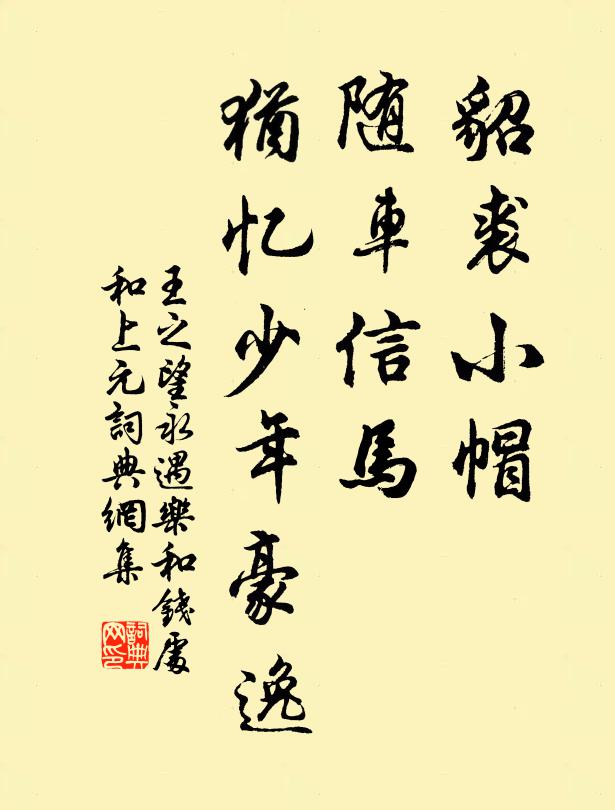 貂裘小帽
随車信馬
猶忆少年豪逸
王之望永遇樂和錢處
和上元詞典網集
詞典网印